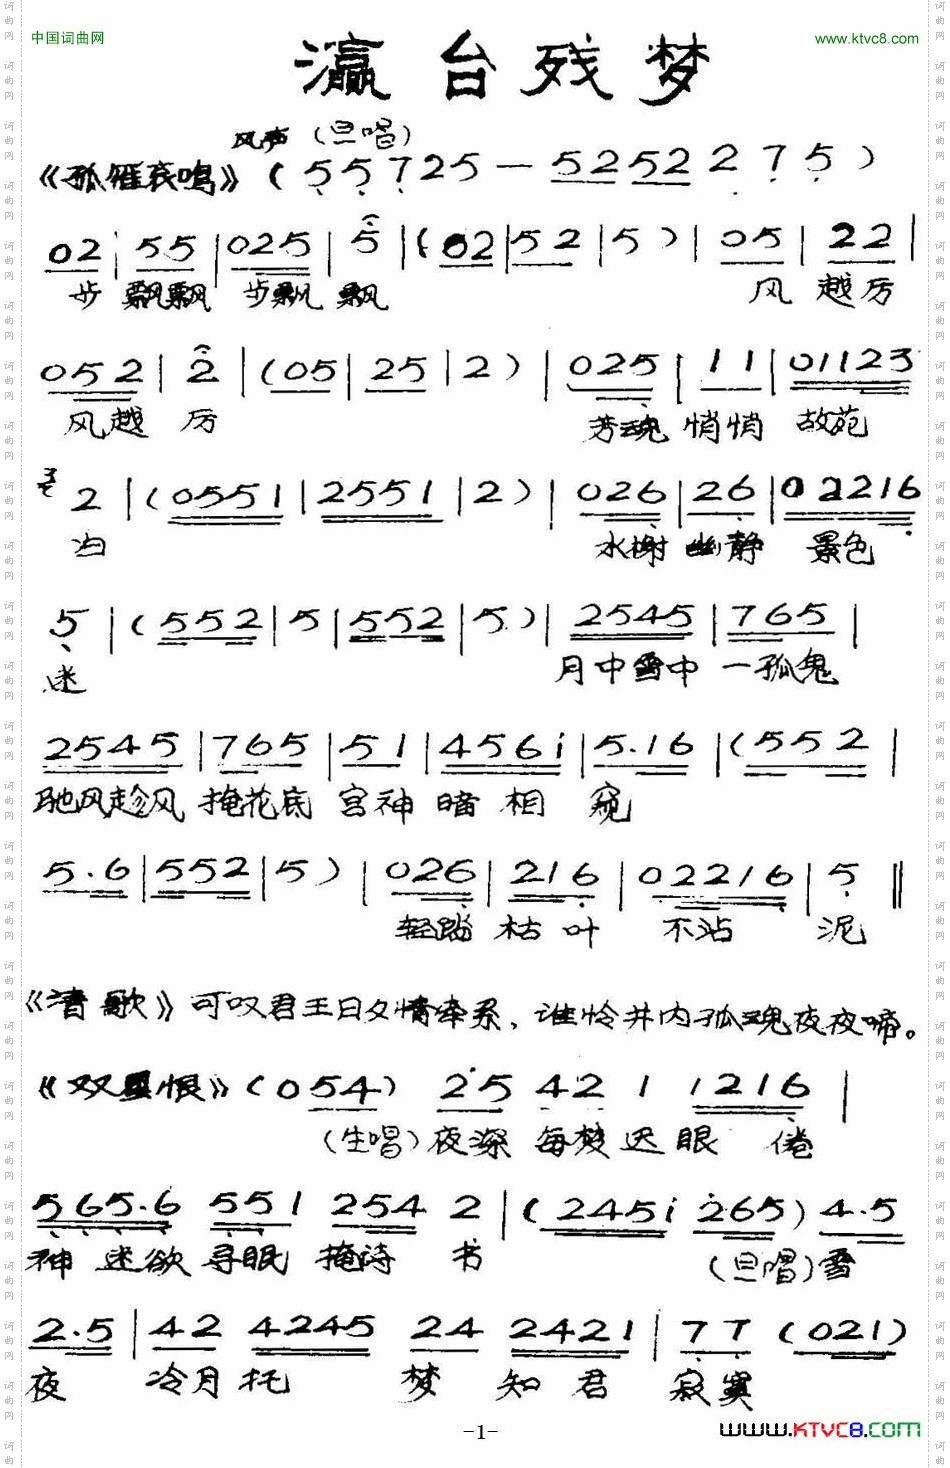 中国词曲网 www.ktvc8.com
瀛台残梦
风声 (旦唱)
《孤雁夜鸣》( 5 5 7 2 5 — 5 2 5 2 2 7 5 )
02 | 55 | 025 | 5 | (02 | 52 | 5) | 05 | 22 |
步 飘飘 步飘 飘 风 越厉
052 | 2 | (05 | 25 | 2) | 025 | 11 | 01123
风越 厉 芳魂 悄悄 故苑
2 | (0551 | 2551 | 2) | 026 | 26 | 02216
归 水榭 幽静 景色
5 | (552 | 5 | 552 | 5) | 2545 | 765 |
迷 月中雪中 一孤鬼
2545 | 765 | 51 | 456i | 5.16 | (552 |
驰风趁风 掩花底 宫神 暗 相 窥
5.6 | 552 | 5) | 026 | 216 | 02216 | 5 ||
轻踏 枯叶 不沾 泥
《清歌》可叹君王日夕情牵系，谁怜井内孤魂夜夜啼。
《双星恨》(054) 25 42 1 1216 |
(生唱) 夜深 每梦迟 眼 倦
565.6 551 254 2 | (245i 265) 4.5
神 迷欲 寻眠 掩诗 书 (旦唱) 雪
2.5 | 42 4245 24 2421 | 77 (021)
夜 冷月 托 梦 知 君 寂寞
-1-
WWW.KTVC8.COM